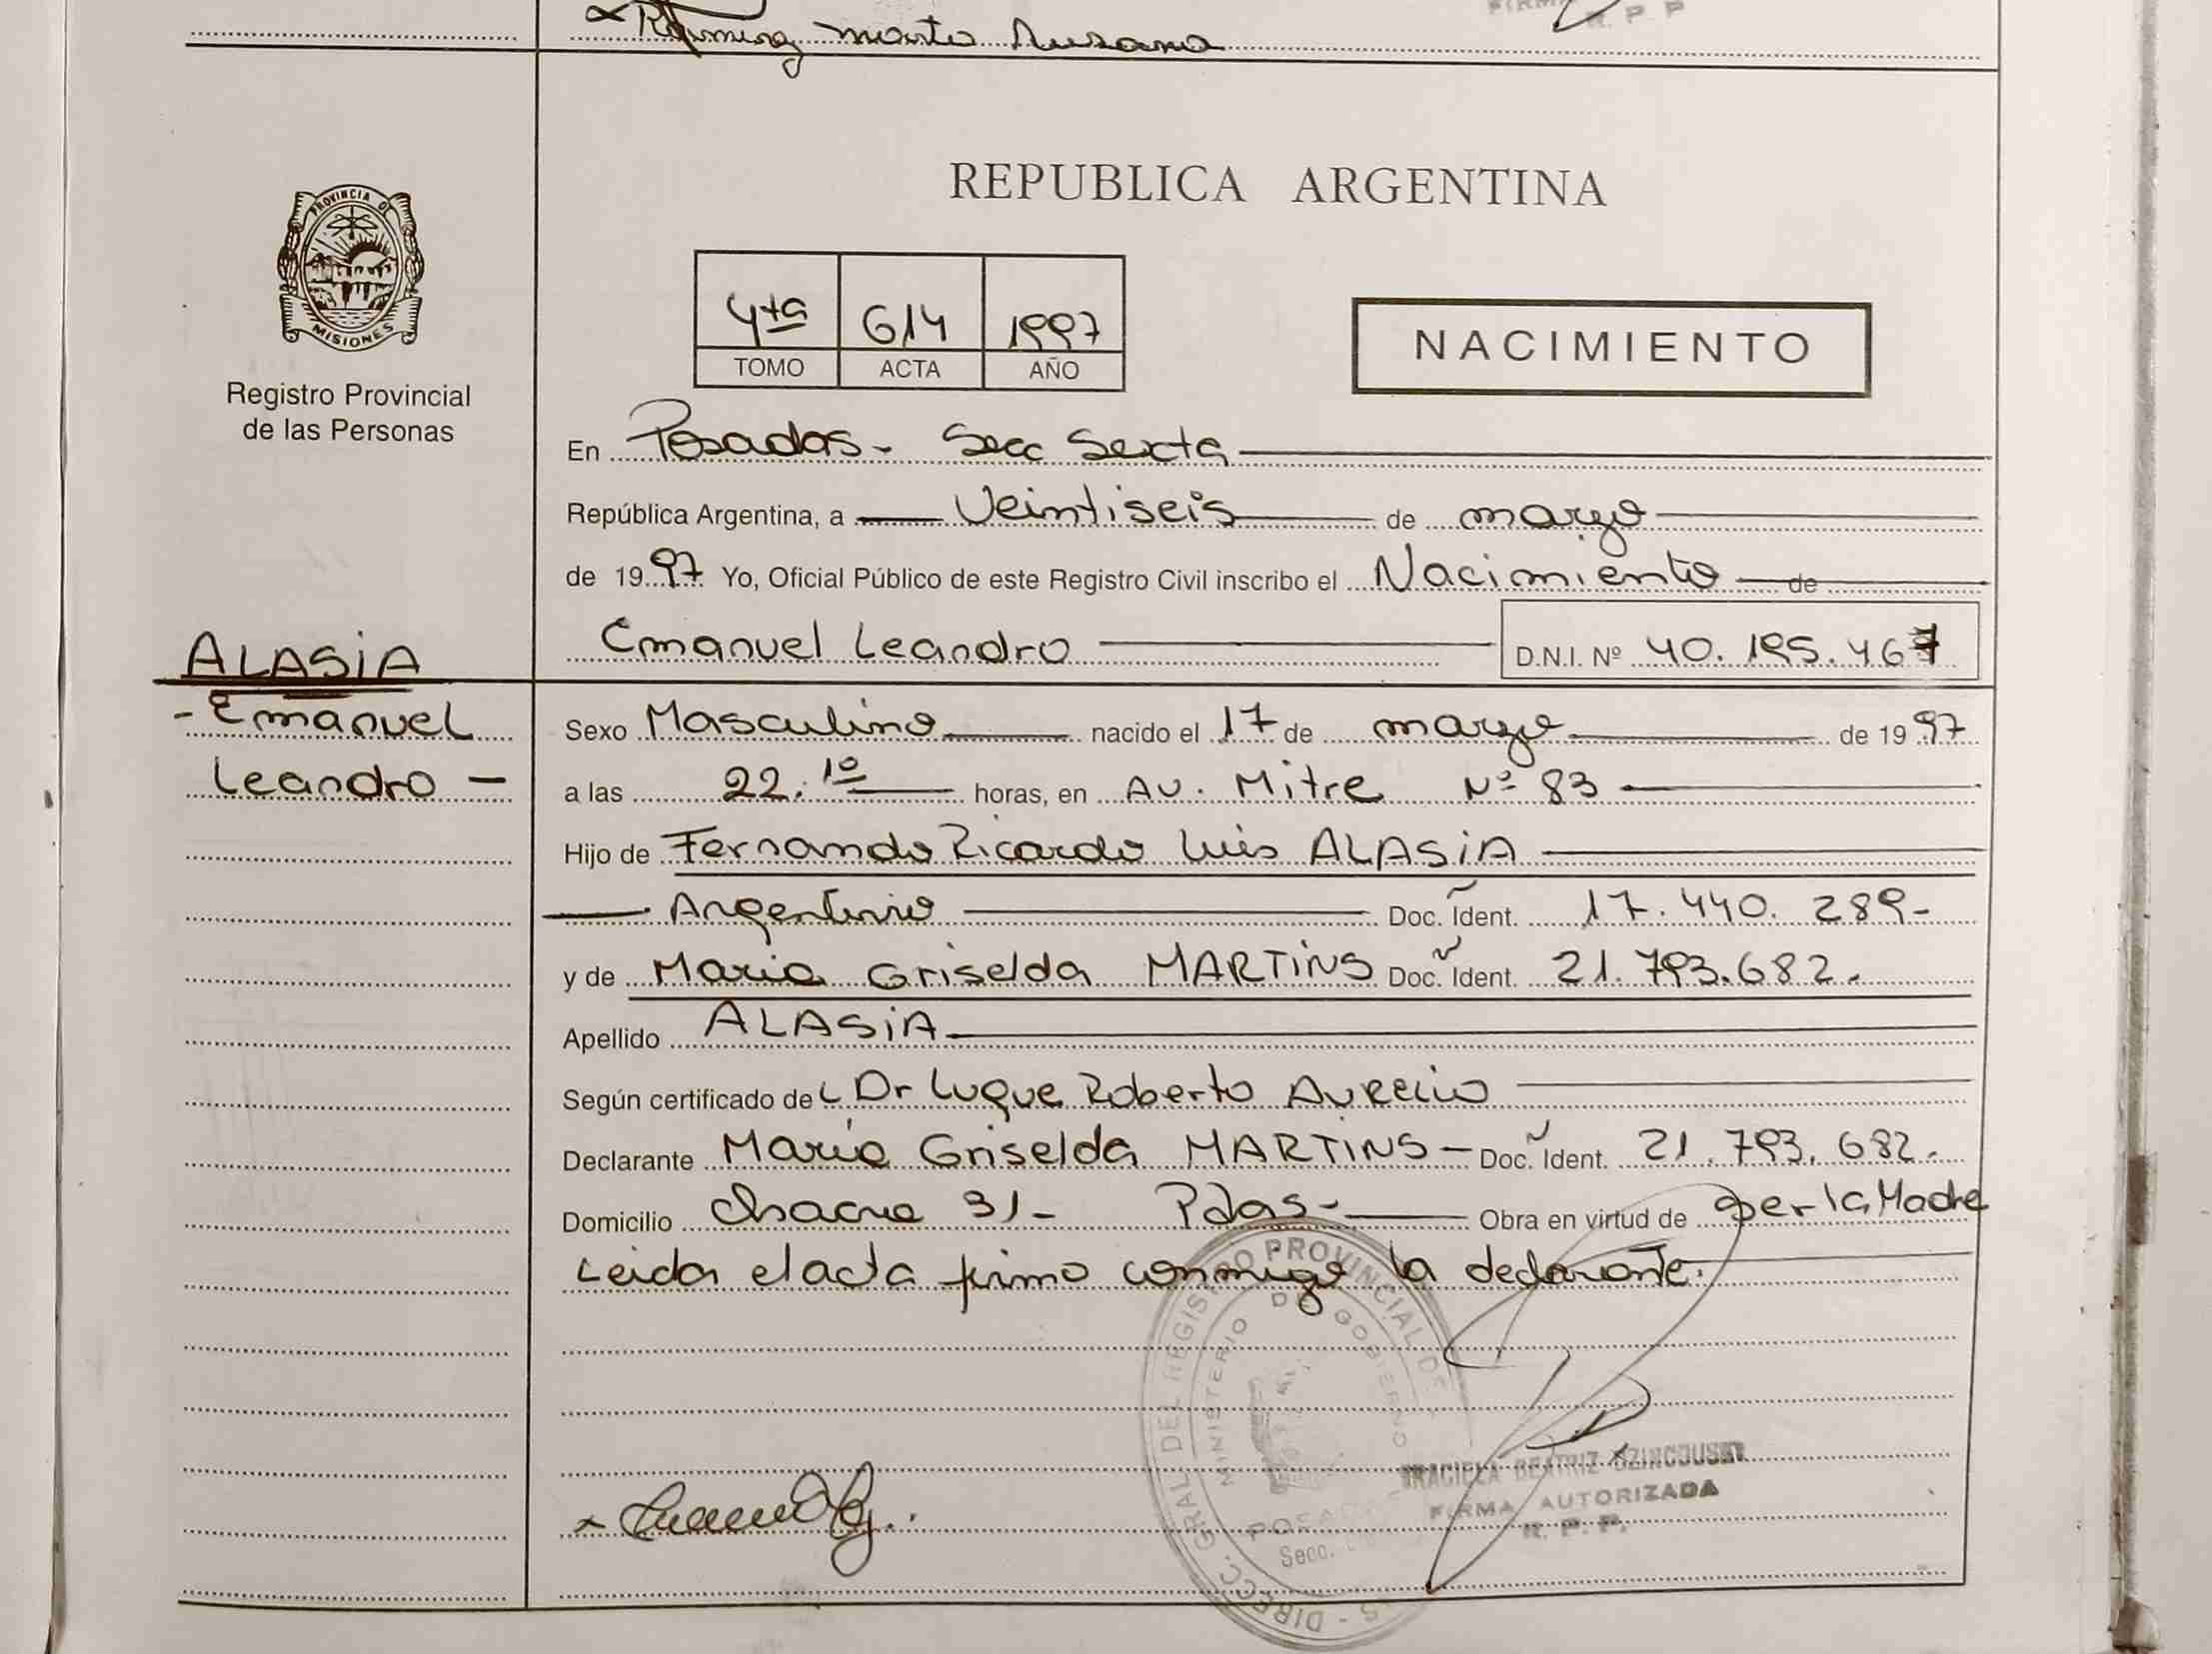 Marta Susana
R. P. P
PROVINCIA DE
MISIONES
Registro Provincial
de las Personas
REPUBLICA ARGENTINA
4ta 614 1997
TOMO ACTA AÑO
NACIMIENTO
En Posadas - Secc Sexta
República Argentina, a Veintiseis de marzo
de 1997 Yo, Oficial Público de este Registro Civil inscribo el Nacimiento de
Emanuel Leandro D.N.I. Nº 40.195.467
ALASiA
- Emanuel
Leandro -
Sexo Masculino nacido el 17 de marzo de 1997
a las 22.10 horas, en Av. Mitre Nº 83
Hijo de Fernando Ricardo Luis ALASiA
Argentino Doc. Ident. 17.440.289-
y de Maria Griselda MARTiNS Doc. Ident. 21.793.682.
Apellido ALASiA
Según certificado de L Dr Luque Roberto Aurelio
Declarante Maria Griselda MARTiNS - Doc. Ident. 21.793.682.
Domicilio Chacra 31- Pdas- Obra en virtud de ser la Madre
Leida el acta firmo conmigo la declarante.
DIRECC. GRAL DEL REGISTRO PROVINCIAL DE
MINISTERIO DE GOBIERNO
Secc.
GRACIELA BEATRIZ
FIRMA AUTORIZADA
R. P. P.